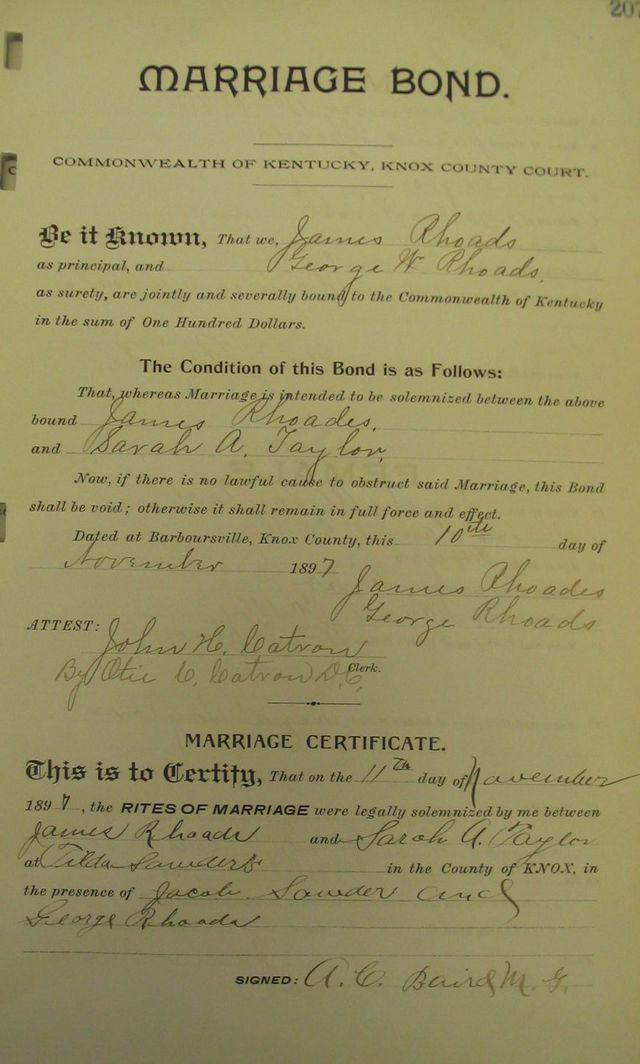 207
MARRIAGE BOND.
COMMONWEALTH OF KENTUCKY, KNOX COUNTY COURT.
Be it Known, That we, James Rhoads
as principal, and George W Rhoads,
as surety, are jointly and severally bound to the Commonwealth of Kentucky
in the sum of One Hundred Dollars.
The Condition of this Bond is as Follows:
That, whereas Marriage is intended to be solemnized between the above
bound James Rhoades,
and Sarah A. Taylor,
Now, if there is no lawful cause to obstruct said Marriage, this Bond
shall be void; otherwise it shall remain in full force and effect.
Dated at Barboursville, Knox County, this 10th day of
November 1897
James Rhoades
George Rhoads
ATTEST: John H. Catron
By Otis C. Catron D.C. Clerk.
MARRIAGE CERTIFICATE.
This is to Certify, That on the 11th day of November
1897, the RITES OF MARRIAGE were legally solemnized by me between
James Rhoads and Sarah A. Taylor
at Tilda in the County of KNOX, in
the presence of Jacob Sawder and
George Rhoads
SIGNED: A. C. Baird M. G.